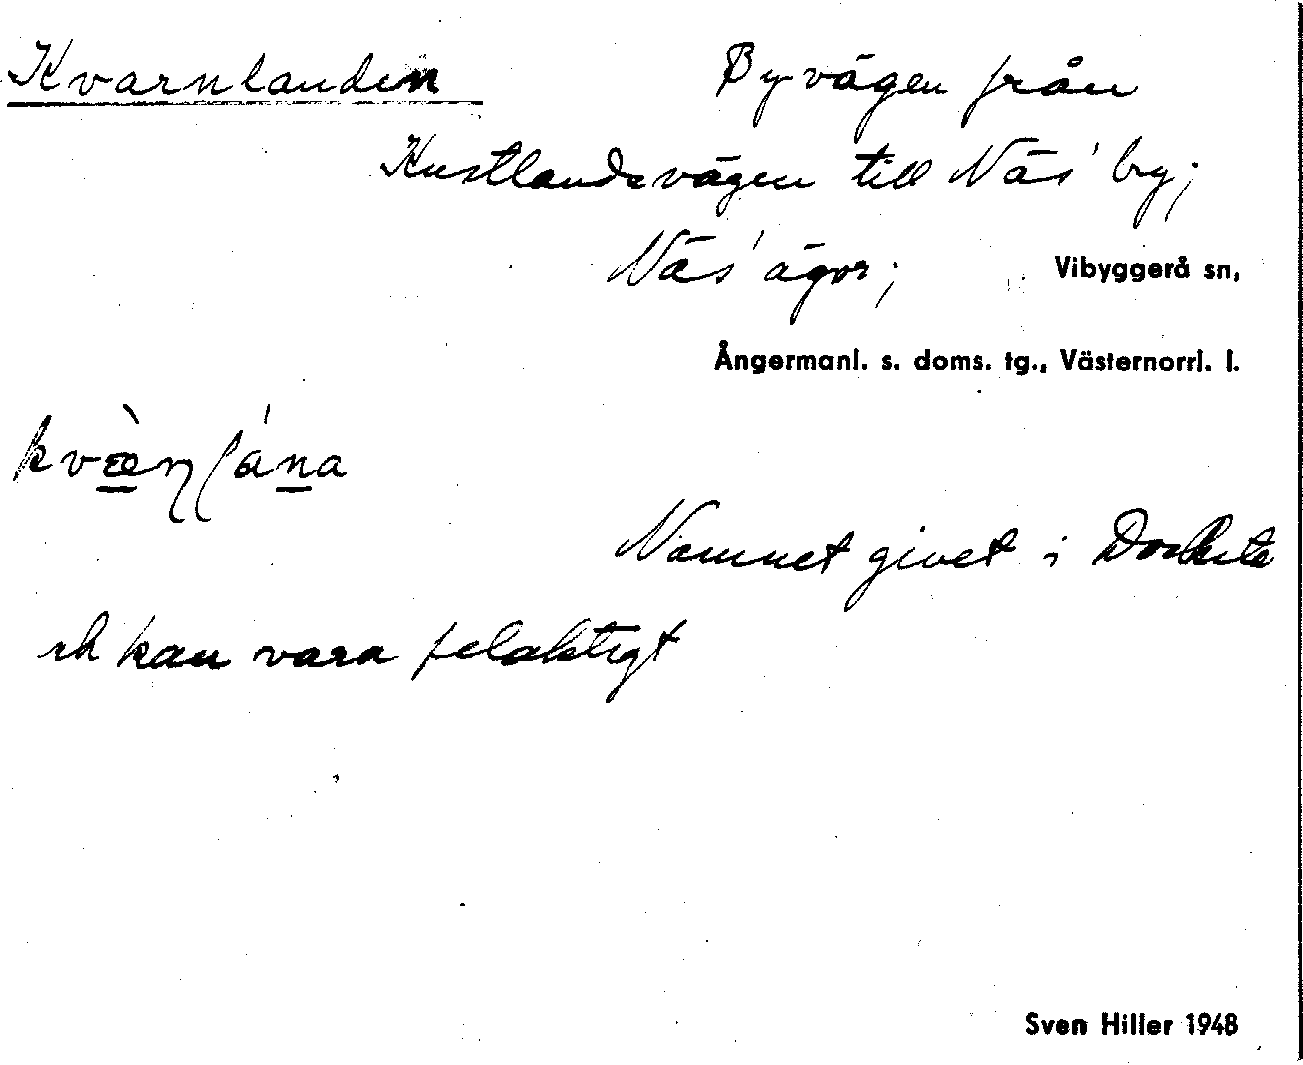 Kvarnlanden Byvägen från
Kustlandsvägen till Näs' by;
Näs' ägor; Vibyggerå sn,
Ångermanl. s. doms. tg., Västernorrl. l.
Namnet givet i Docksta
ch kan vara felaktigt
Sven Hiller 1948